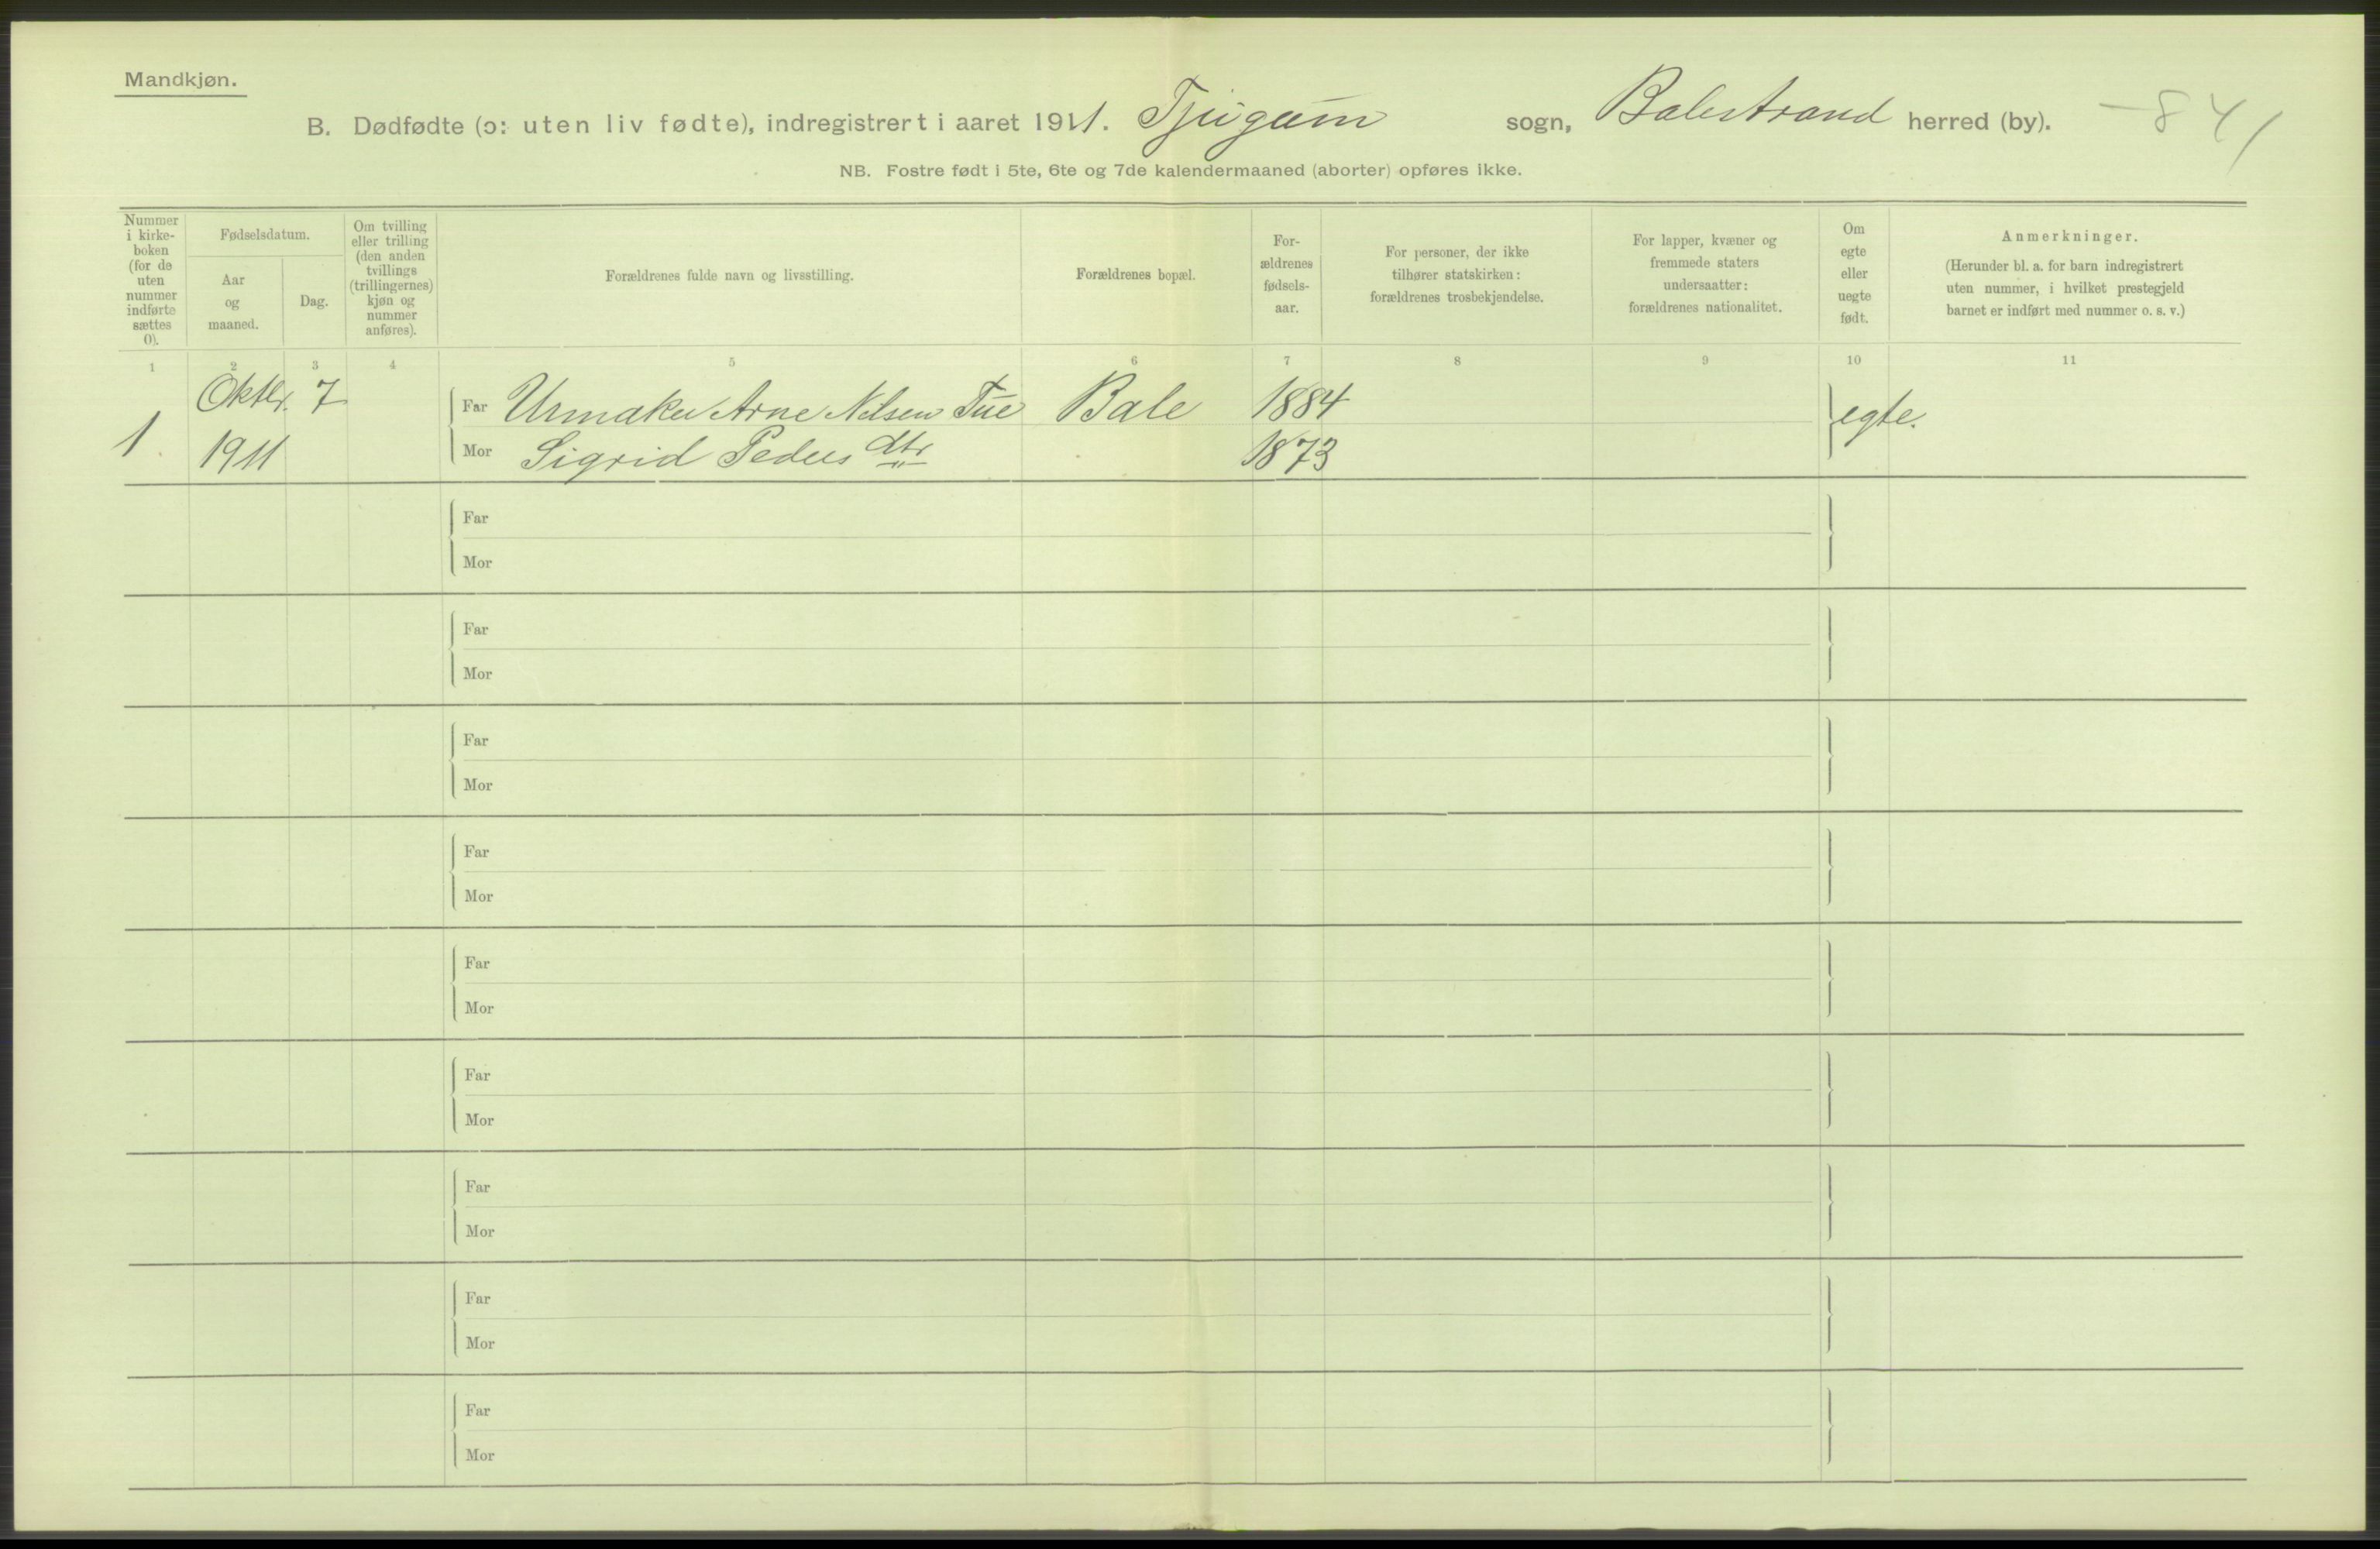 Mandkjøn.
B. Dødfødte (ɔ: uten liv fødte), indregistrert i aaret 1911. Tjugum sogn, Balestrand herred (by). - 841
NB. Fostre født i 5te, 6te og 7de kalendermaaned (aborter) opføres ikke.
Nummer
i kirke-
boken
(for de
uten
nummer
indførte
sættes
0).
Fødselsdatum.
Aar
og
maaned.
Dag.
Om tvilling
eller trilling
(den anden
tvillings
(trillingernes)
kjøn og
nummer
anføres).
Forældrenes fulde navn og livsstilling.
Forældrenes bopæl.
For-
ældrenes
fødsels-
aar.
For personer, der ikke
tilhører statskirken:
forældrenes trosbekjendelse.
For lapper, kvæner og
fremmede staters
undersaatter:
forældrenes nationalitet.
Om
egte
eller
uegte
født.
Anmerkninger.
(Herunder bl. a. for barn indregistrert
uten nummer, i hvilket prestegjeld
barnet er indført med nummer o. s. v.)
1 2 3 4 5 6 7 8 9 10 11
Oktbr. 7 Far Urmaker Arne Nilsen Tue Bale 1884 egte.
1. 1911 Mor Sigrid Pedersdtr 1873
Far
Mor
Far
Mor
Far
Mor
Far
Mor
Far
Mor
Far
Mor
Far
Mor
Far
Mor
Far
Mor